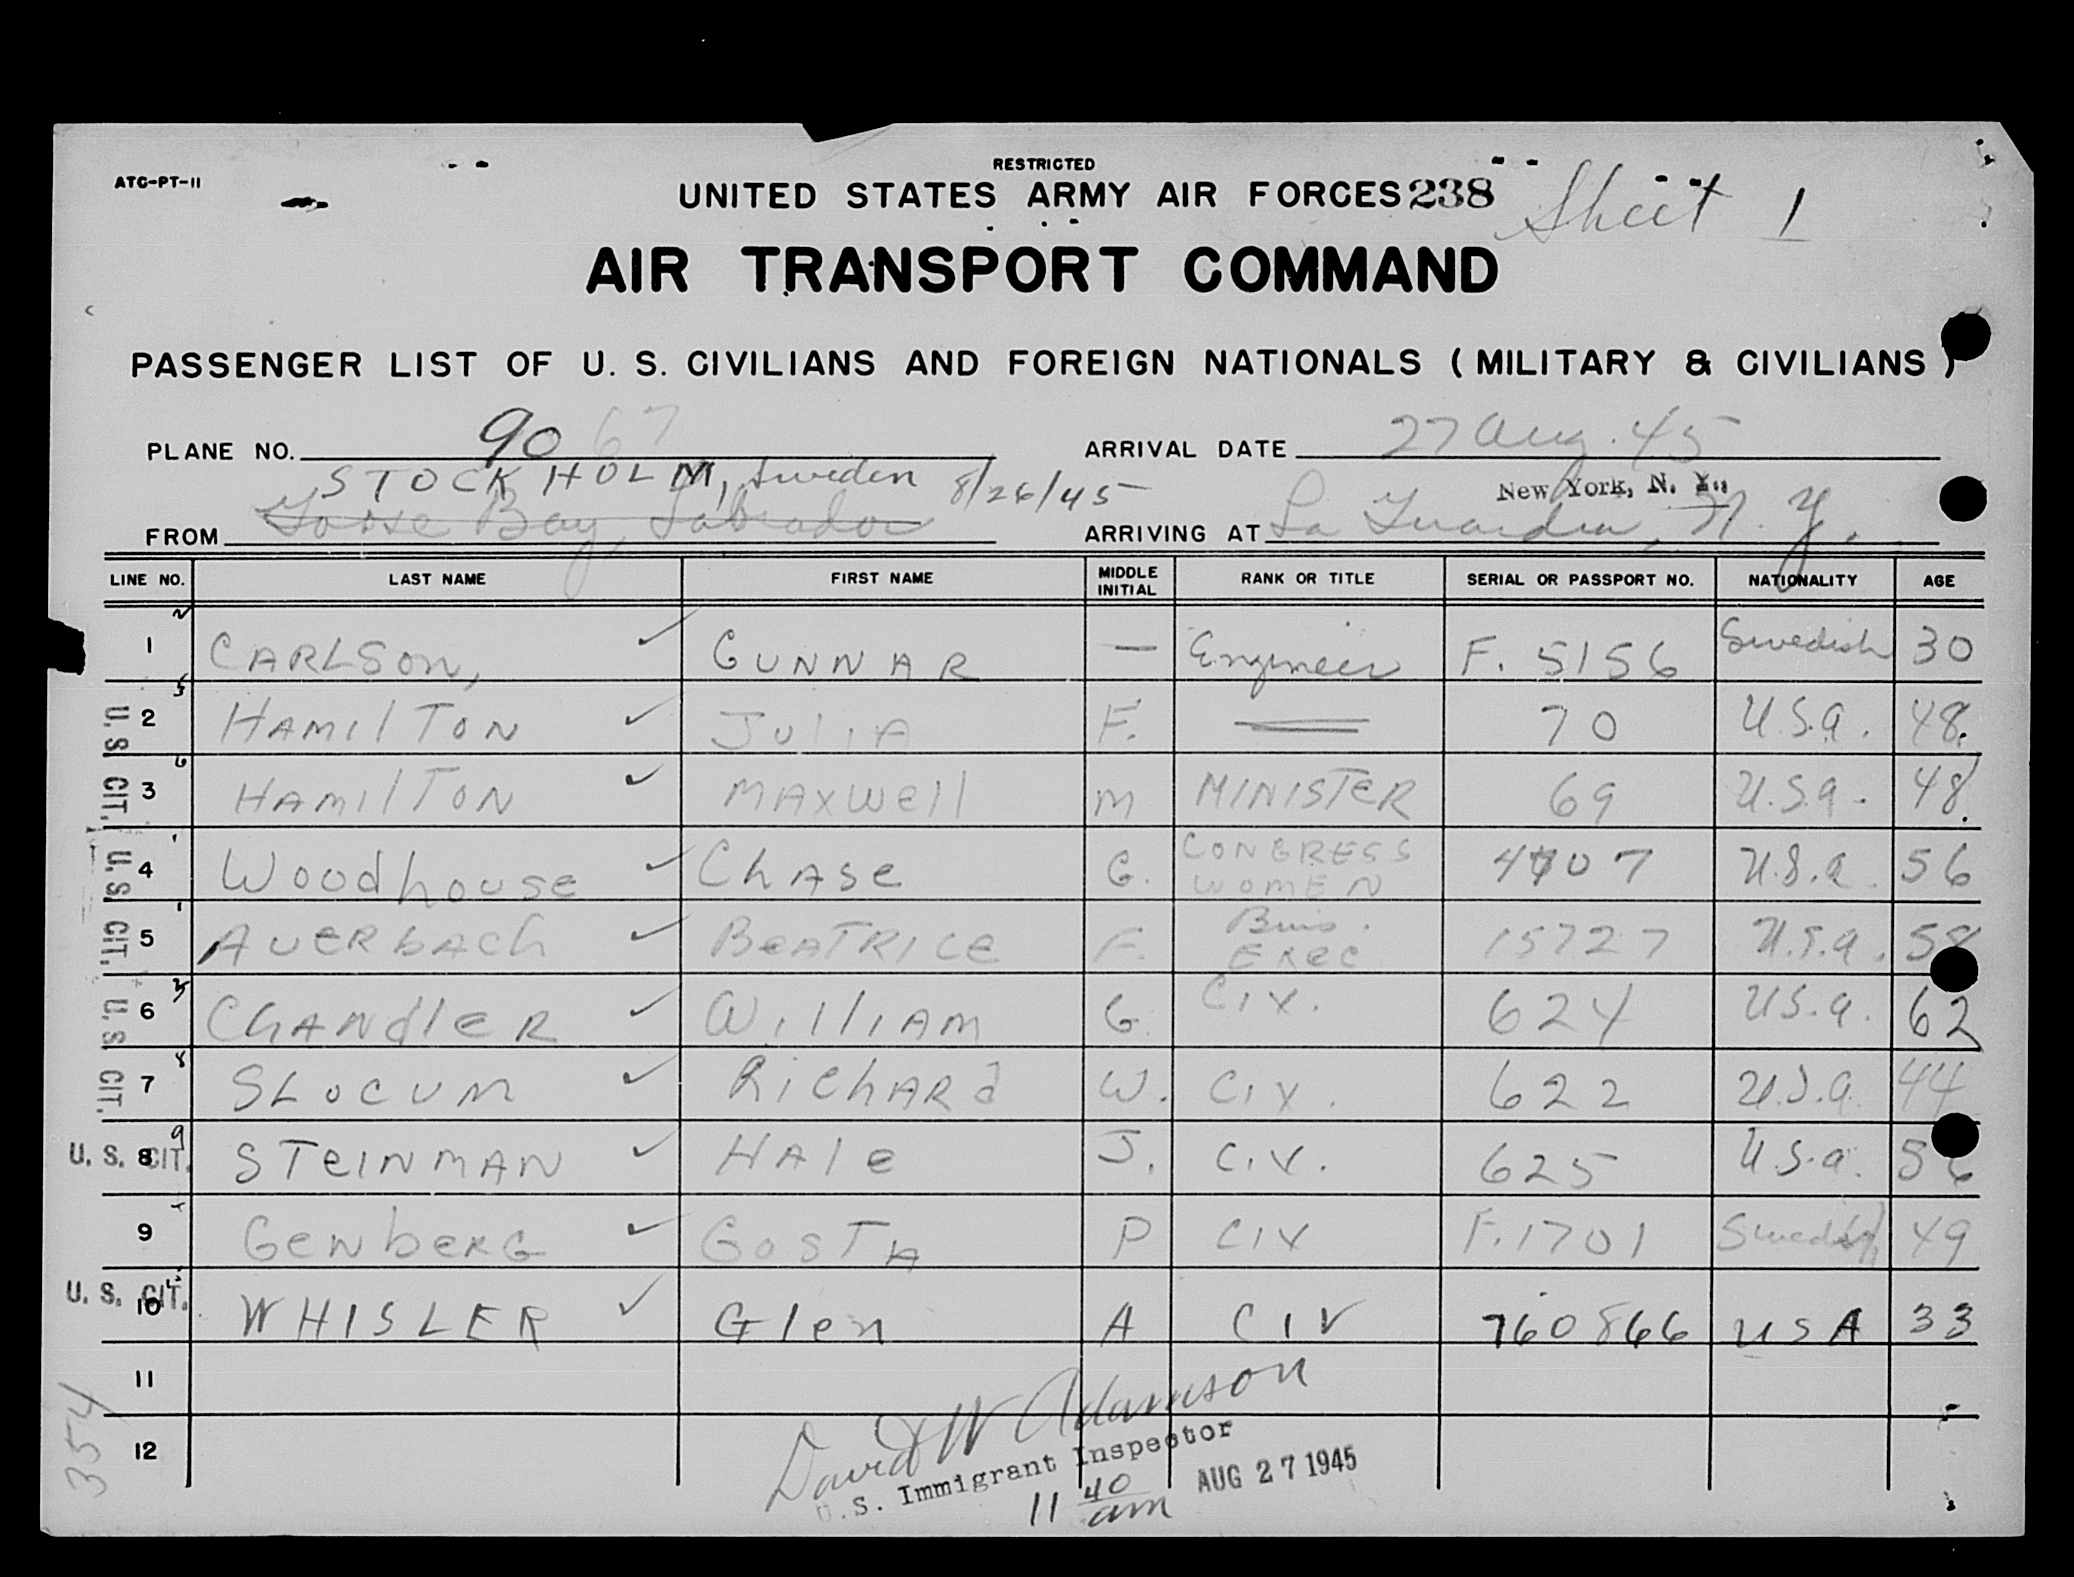 RESTRICTED
ATC-PT-11
UNITED STATES ARMY AIR FORCES 238 Sheet 1
AIR TRANSPORT COMMAND
PASSENGER LIST OF U. S. CIVILIANS AND FOREIGN NATIONALS (MILITARY & CIVILIANS)
PLANE NO. 9067 ARRIVAL DATE 27 Aug. 45
STOCKHOLM, Sweden 8/26/45 New York, N. Y.
FROM Goose Bay, Labrador ARRIVING AT La Guardia, N. Y.
LINE NO. LAST NAME FIRST NAME MIDDLE INITIAL RANK OR TITLE SERIAL OR PASSPORT NO. NATIONALITY AGE
1 CARLSON, ✓ GUNNAR — Engineer F. 5156 Swedish 30
U. S. CIT. 2 HAMILTON ✓ JULIA F. — 70 U.S.A. 48.
3 HAMILTON ✓ MAXWELL M MINISTER 69 U.S.A. 48.
U. S. CIT. 4 Woodhouse ✓ CHASE G. CONGRESS WOMEN 4707 U.S.A. 56
5 AUERBACH ✓ BEATRICE F. Bus. Exec 15727 U.S.A. 58
U. S. CIT. 6 CHANDLER ✓ WILLIAM G. CIV. 624 U.S.A. 62
7 SLOCUM ✓ RICHARD W. CIV. 622 U.S.A. 44
U. S. CIT. 8 STEINMAN ✓ HALE J. CIV. 625 U.S.A. 56
9 GENBERG ✓ GOSTA P CIV F.1701 Swedish 49
U. S. CIT. 10 WHISLER ✓ Glen A CIV 760866 USA 33
11
12
354
David W Adamson
U.S. Immigrant Inspector
11 40 am AUG 27 1945